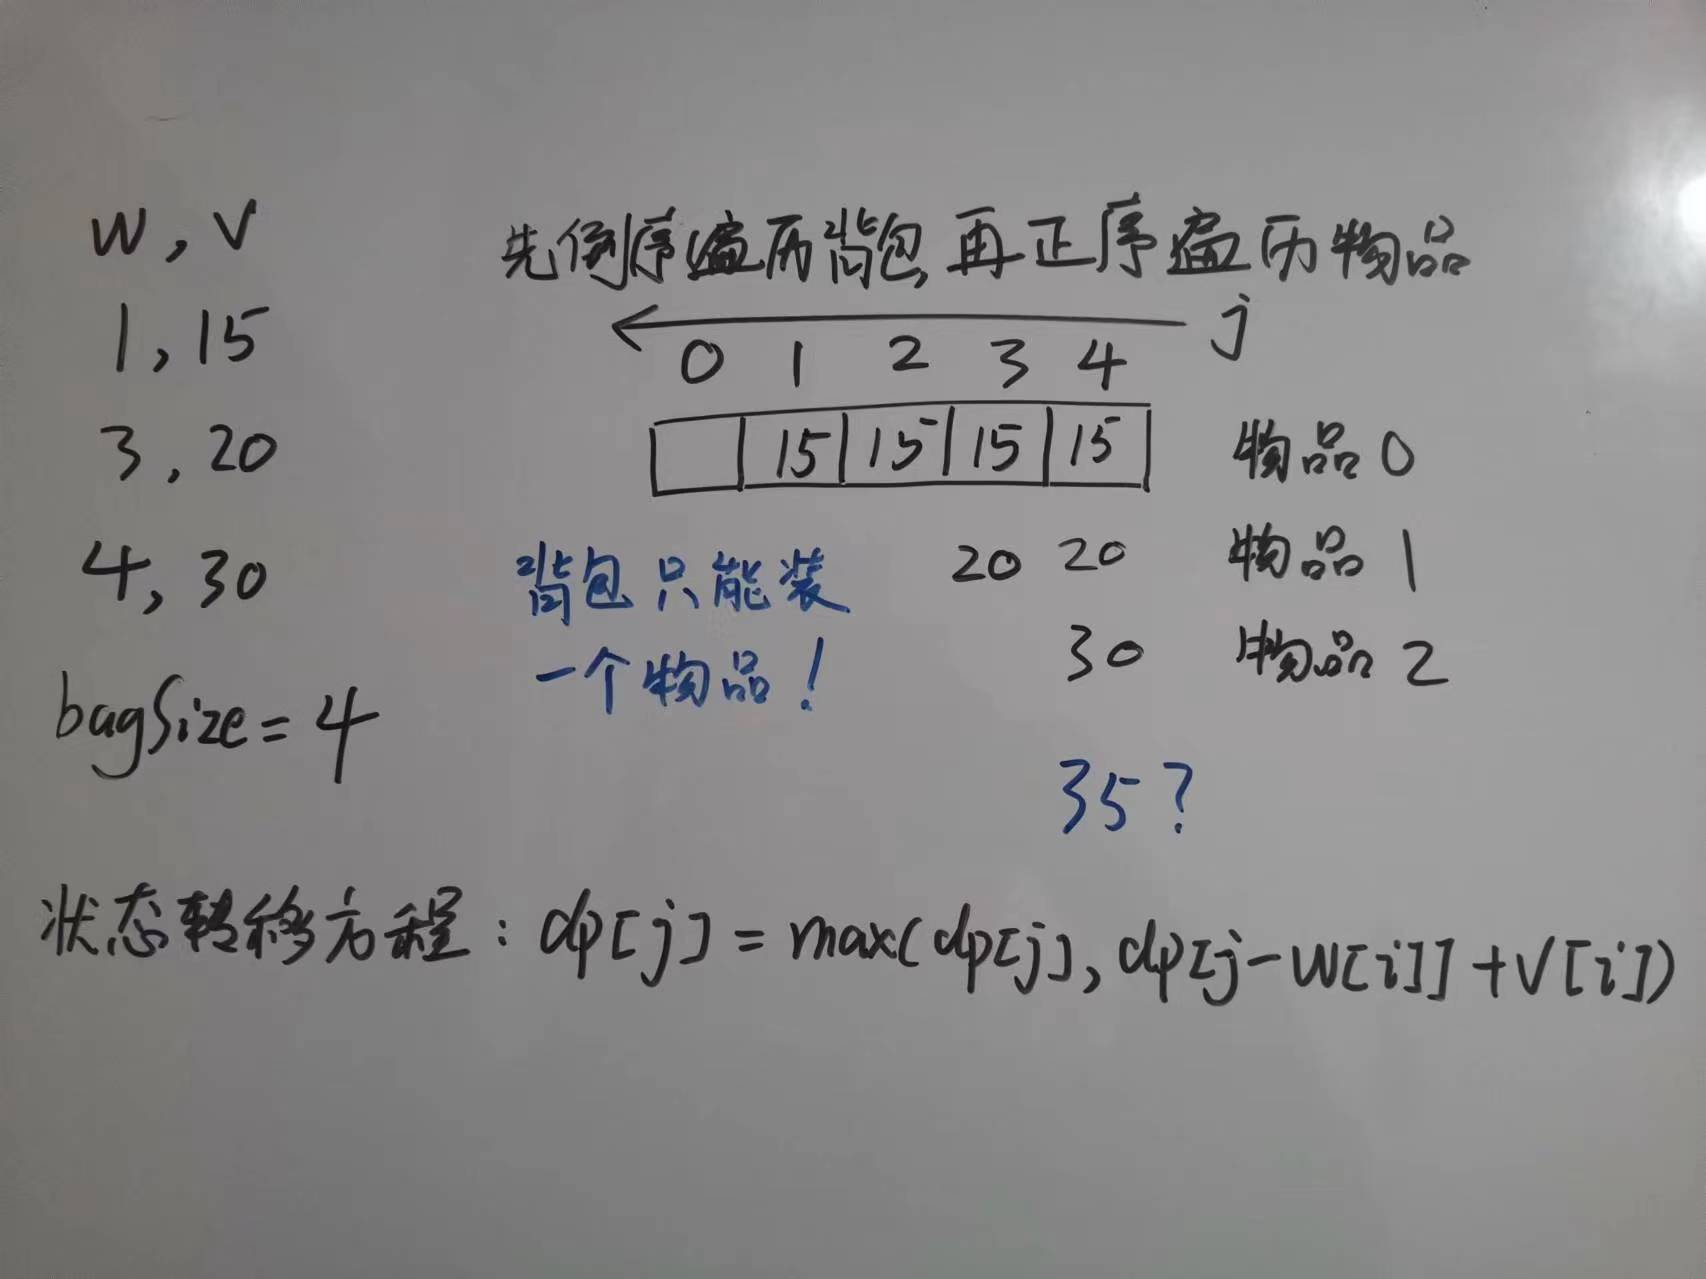 W,V
1,15
3,20
4,30
bagSize=4
先倒序遍历背包,再正序遍历物品
j
0 1 2 3 4
15 15 15 15 物品0
20 20 物品1
30 物品2
背包只能装
一个物品!
35?
状态转移方程:dp[j]=max(dp[j],dp[j-W[i]]+V[i])